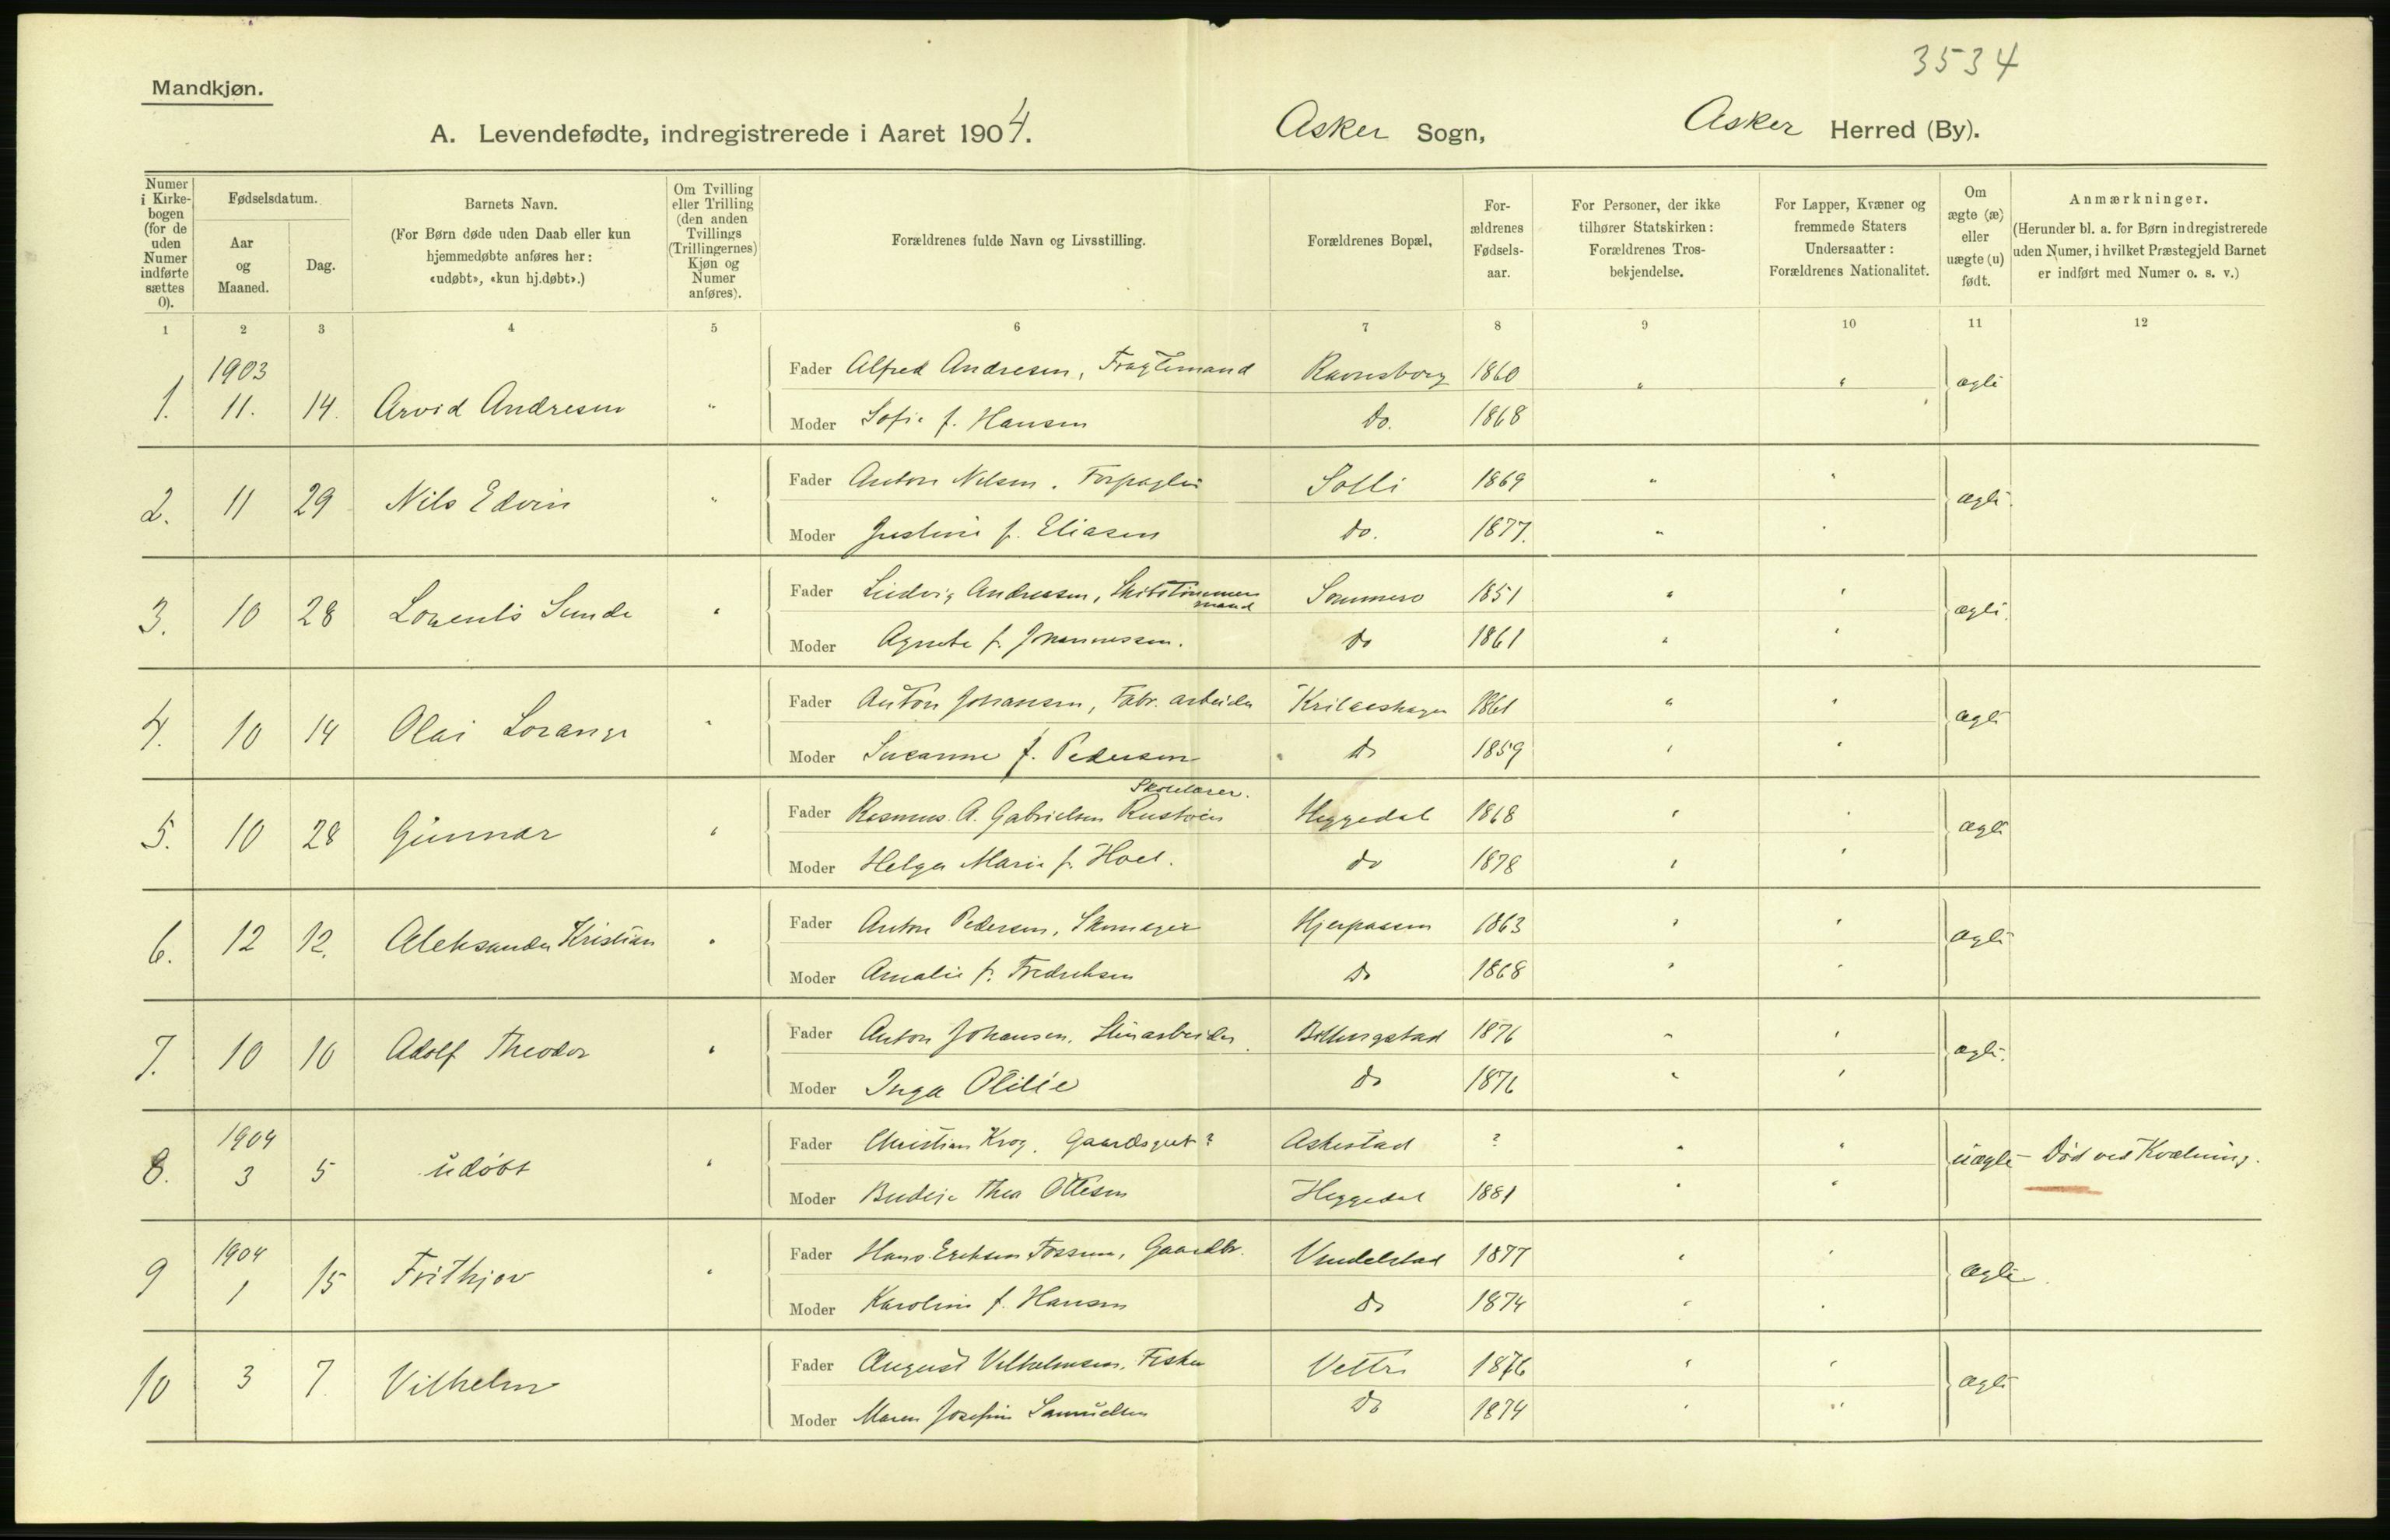 3534
Mandkjøn.
A. Levendefødte, indregistrerede i Aaret 1904. Asker Sogn, Asker Herred (By).
Numer i Kirke-bogen (for de uden Numer indførte sættes 0).
Fødselsdatum.
Aar og Maaned.
Dag.
Barnets Navn.
(For Børn døde uden Daab eller kun
hjemmedøbte anføres her:
«udøbt», «kun hj.døbt».)
Om Tvilling
eller Trilling
(den anden
Tvillings
(Trillingernes)
Kjøn og
Numer
anføres).
Forældrenes fulde Navn og Livsstilling.
Forældrenes Bopæl,
For-
ældrenes
Fødsels-
aar.
For Personer, der ikke
tilhører Statskirken:
Forældrenes Tros-
bekjendelse.
For Lapper, Kvæner og
fremmede Staters
Undersaatter:
Forældrenes Nationalitet.
Om
ægte (æ)
eller
uægte (u)
født.
Anmærkninger.
(Herunder bl. a. for Børn indregistrerede
uden Numer, i hvilket Præstegjeld Barnet
er indført med Numer o. s. v.)
1 2 3 4 5 6 7 8 9 10 11 12
1903
1. 11. 14. Arvid Andresen " Fader Alfred Andresen, Fragtemand Ravnsborg 1860 " " ægte
Moder Sofie f. Hansen Do. 1868
2. 11 29 Nils Edvin " Fader Anton Nilsen. Forpagter Solli 1869 " " ægte.
Moder Justine f. Eliasen do. 1877. " "
3. 10 28 Lorents Sunde " Fader Ludvig Andressen, Skibstømmermand 1851 " " ægte.
Moder Agnete f. Johannessen. Do 1861 " "
4. 10 14 Olai Lorange " Fader Anton Johansen, Fabr. arbeider 1861 " " ægte
Moder Susanne f. Pedersen Do 1859 " "
Skolelærer.
5. 10 28 Gunnar " Fader Rasmus A. Gabrielsen Rustøen Heggedal 1868 " " ægte
Moder Helga Marie f. Hoel. do 1878 " "
6. 12 12. Aleksander Kristian " Fader Anton Pedersen, Skomager 1863 " " ægte
Moder Amalie f. Fredriksen Do 1868 " "
7. 10 10 Adolf Theodor " Fader Anton Johansen, Stenarbeider. Billingstad 1876 " " ægte.
Moder Inga Otilie Do 1876 " "
1904
8. 3 5 udøbt " Fader Christian Krog. Gaardsgut? Askestad ? " " uægte Død ved Kvælning.
Moder Thea Ottesen Heggedal 1881 " "
1904
9 1 15 Frithjov " Fader Hans Eriksen Fossum, Gaardbr. Vendelstad 1877 " " ægte.
Moder Karoline f. Hansen Do 1874 " "
10 3 7. Vilhelm Fader August Vilhelmsen, Fisker Vettre 1876 " " ægte
Moder Maren Josefine Samuelsen Do 1874 " "